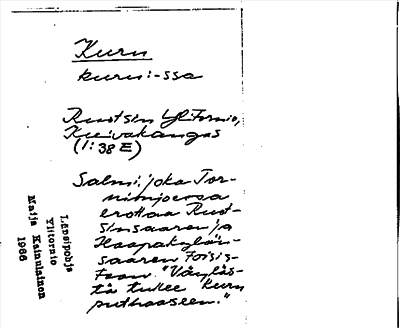 Kuru
kuru:-ssa
Ruotsin Yli Tornio,
Kuivakangas
(1:38 E)
Salmi, joka Tor-
niojoessa
erottaa Ruot-
sinsaaren ja
Haapakylän-
saaren toisis-
taan. "Väyläs-
tä tulee kuru
puthaaseen."
Länsipohja
Ylitornio
Maija Kainulainen
1966